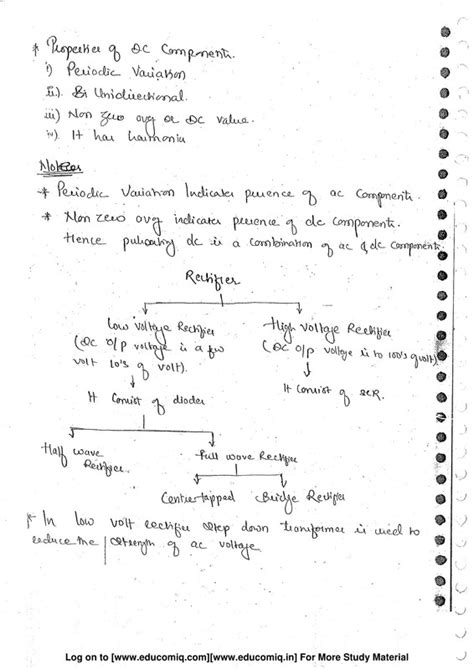 * Properties of DC Components.
i) Periodic Variation
ii). Unidirectional.
iii) Non zero avg or DC value.
iv). It has harmonics
Notes
* Periodic Variation Indicates presence of ac Components.
* Non zero avg indicates presence of dc Components.
Hence pulsating dc is a Combination of ac & dc Components.
Rectifier
Low Voltage Rectifier
(DC o/p voltage is a few
volt 10's of volt).
High Voltage Rectifier
(DC o/p voltage is to 100's of volt)
It Consist of diodes
It Consist of SCR.
Half wave
Rectifier.
Full wave Rectifier
Centre tapped
Bridge Rectifier
* In low volt rectifier step down transformer is used to
reduce the strength of ac voltage
Log on to [www.educomiq.com][www.educomiq.in] For More Study Material